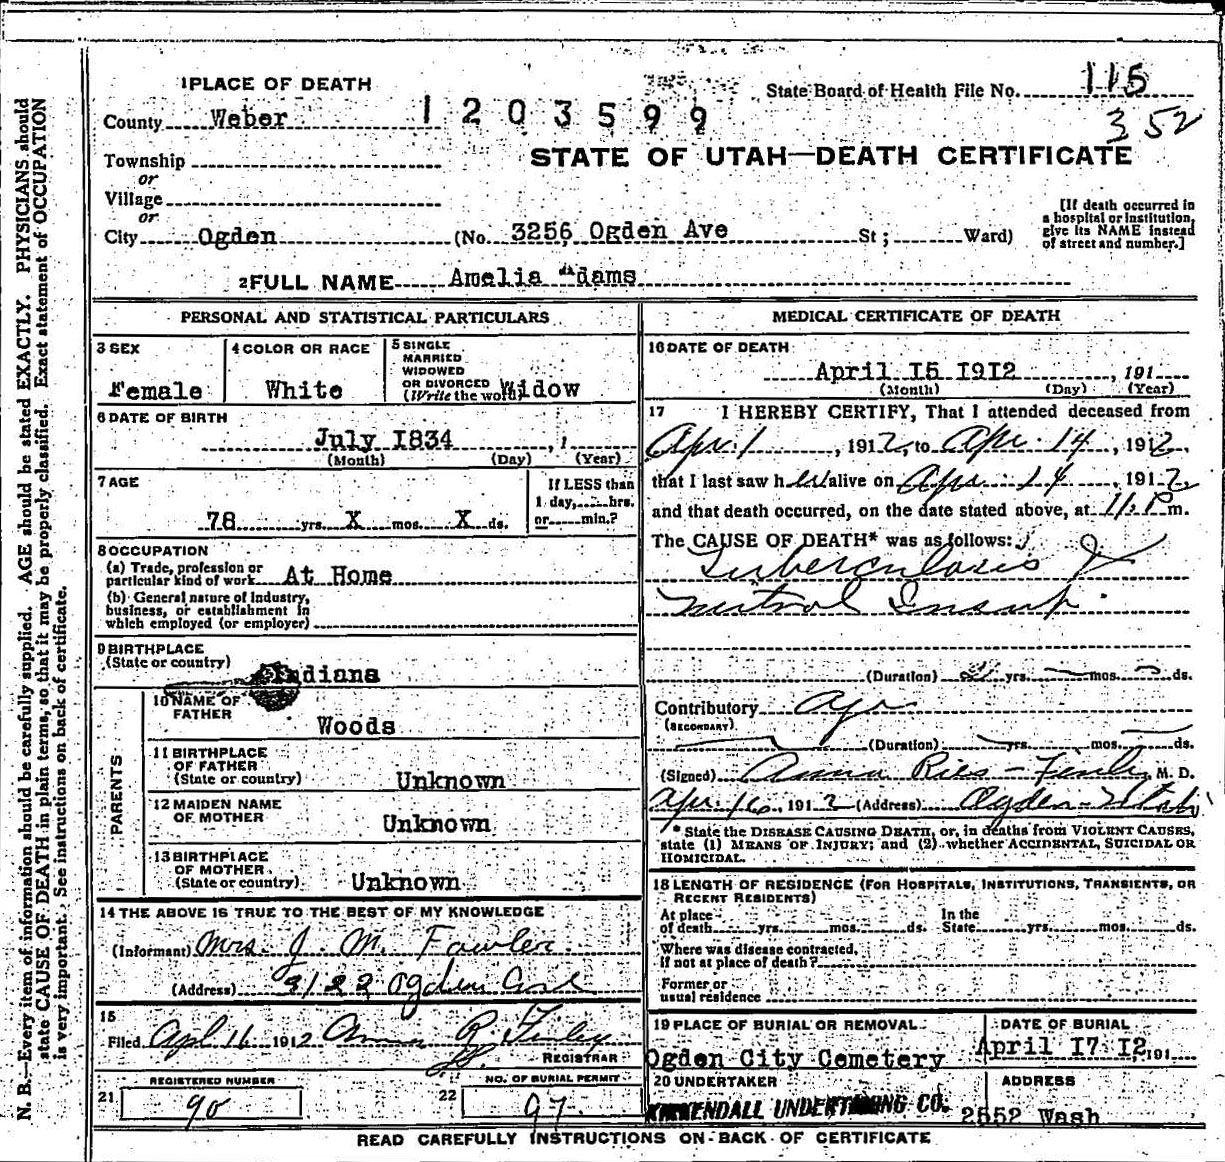 1 PLACE OF DEATH
State Board of Health File No. 115
County Weber 1203599
352
Township
STATE OF UTAH—DEATH CERTIFICATE
or
Village
or
[If death occurred in
a hospital or institution,
give its NAME instead
of street and number.]
City Ogden (No. 3256 Ogden Ave St; Ward)
2 FULL NAME Amelia Adams
PERSONAL AND STATISTICAL PARTICULARS
3 SEX
Female
4 COLOR OR RACE
White
5 SINGLE
MARRIED
WIDOWED
OR DIVORCED
(Write the word) Widow
6 DATE OF BIRTH
July 1834 , 1
(Month) (Day) (Year)
7 AGE
78 yrs. X mos. X ds.
If LESS than
1 day, hrs.
or min.?
8 OCCUPATION
(a) Trade, profession or
particular kind of work At Home
(b) General nature of Industry,
business, or establishment in
which employed (or employer)
9 BIRTHPLACE
(State or country) Indiana
PARENTS
10 NAME OF
FATHER Woods
11 BIRTHPLACE
OF FATHER
(State or country) Unknown
12 MAIDEN NAME
OF MOTHER Unknown
13 BIRTHPLACE
OF MOTHER
(State or country) Unknown
14 THE ABOVE IS TRUE TO THE BEST OF MY KNOWLEDGE
(Informant) Mrs. J. M. Fowler
(Address) 3122 Ogden Ave
15
Filed Apl 16 1912 Anna R. Finley
REGISTRAR
REGISTERED NUMBER
21 90
NO. OF BURIAL PERMIT
22 97
MEDICAL CERTIFICATE OF DEATH
16 DATE OF DEATH
April 15 1912 , 191
(Month) (Day) (Year)
17 I HEREBY CERTIFY, That I attended deceased from
Apr. 1 , 1912, to Apr. 14 , 1912,
that I last saw her alive on Apr. 14 , 1912,
and that death occurred, on the date stated above, at 11 P m.
The CAUSE OF DEATH* was as follows:
Tuberculosis &
Mitral Insuf.
(Duration) yrs. mos. ds.
Contributory Age
(SECONDARY)
(Duration) yrs. mos. ds.
(Signed) Anna Ries-Finley M. D.
Apr. 16, 1912 (Address) Ogden-Utah
* State the DISEASE CAUSING DEATH, or, in deaths from VIOLENT CAUSES,
state (1) MEANS OF INJURY; and (2) whether ACCIDENTAL, SUICIDAL OR
HOMICIDAL.
18 LENGTH OF RESIDENCE (FOR HOSPITALS, INSTITUTIONS, TRANSIENTS, OR
RECENT RESIDENTS)
At place
of death yrs. mos. ds.
In the
State yrs. mos. ds.
Where was disease contracted,
If not at place of death?
Former or
usual residence
19 PLACE OF BURIAL OR REMOVAL
Ogden City Cemetery
DATE OF BURIAL
April 17 12, 191
20 UNDERTAKER
KIRKENDALL UNDERTAKING CO.
ADDRESS
2552 Wash
READ CAREFULLY INSTRUCTIONS ON BACK OF CERTIFICATE
N. B.—Every item of information should be carefully supplied. AGE should be stated EXACTLY. PHYSICIANS should
state CAUSE OF DEATH in plain terms, so that it may be properly classified. Exact statement of OCCUPATION
is very important. See instructions on back of certificate.